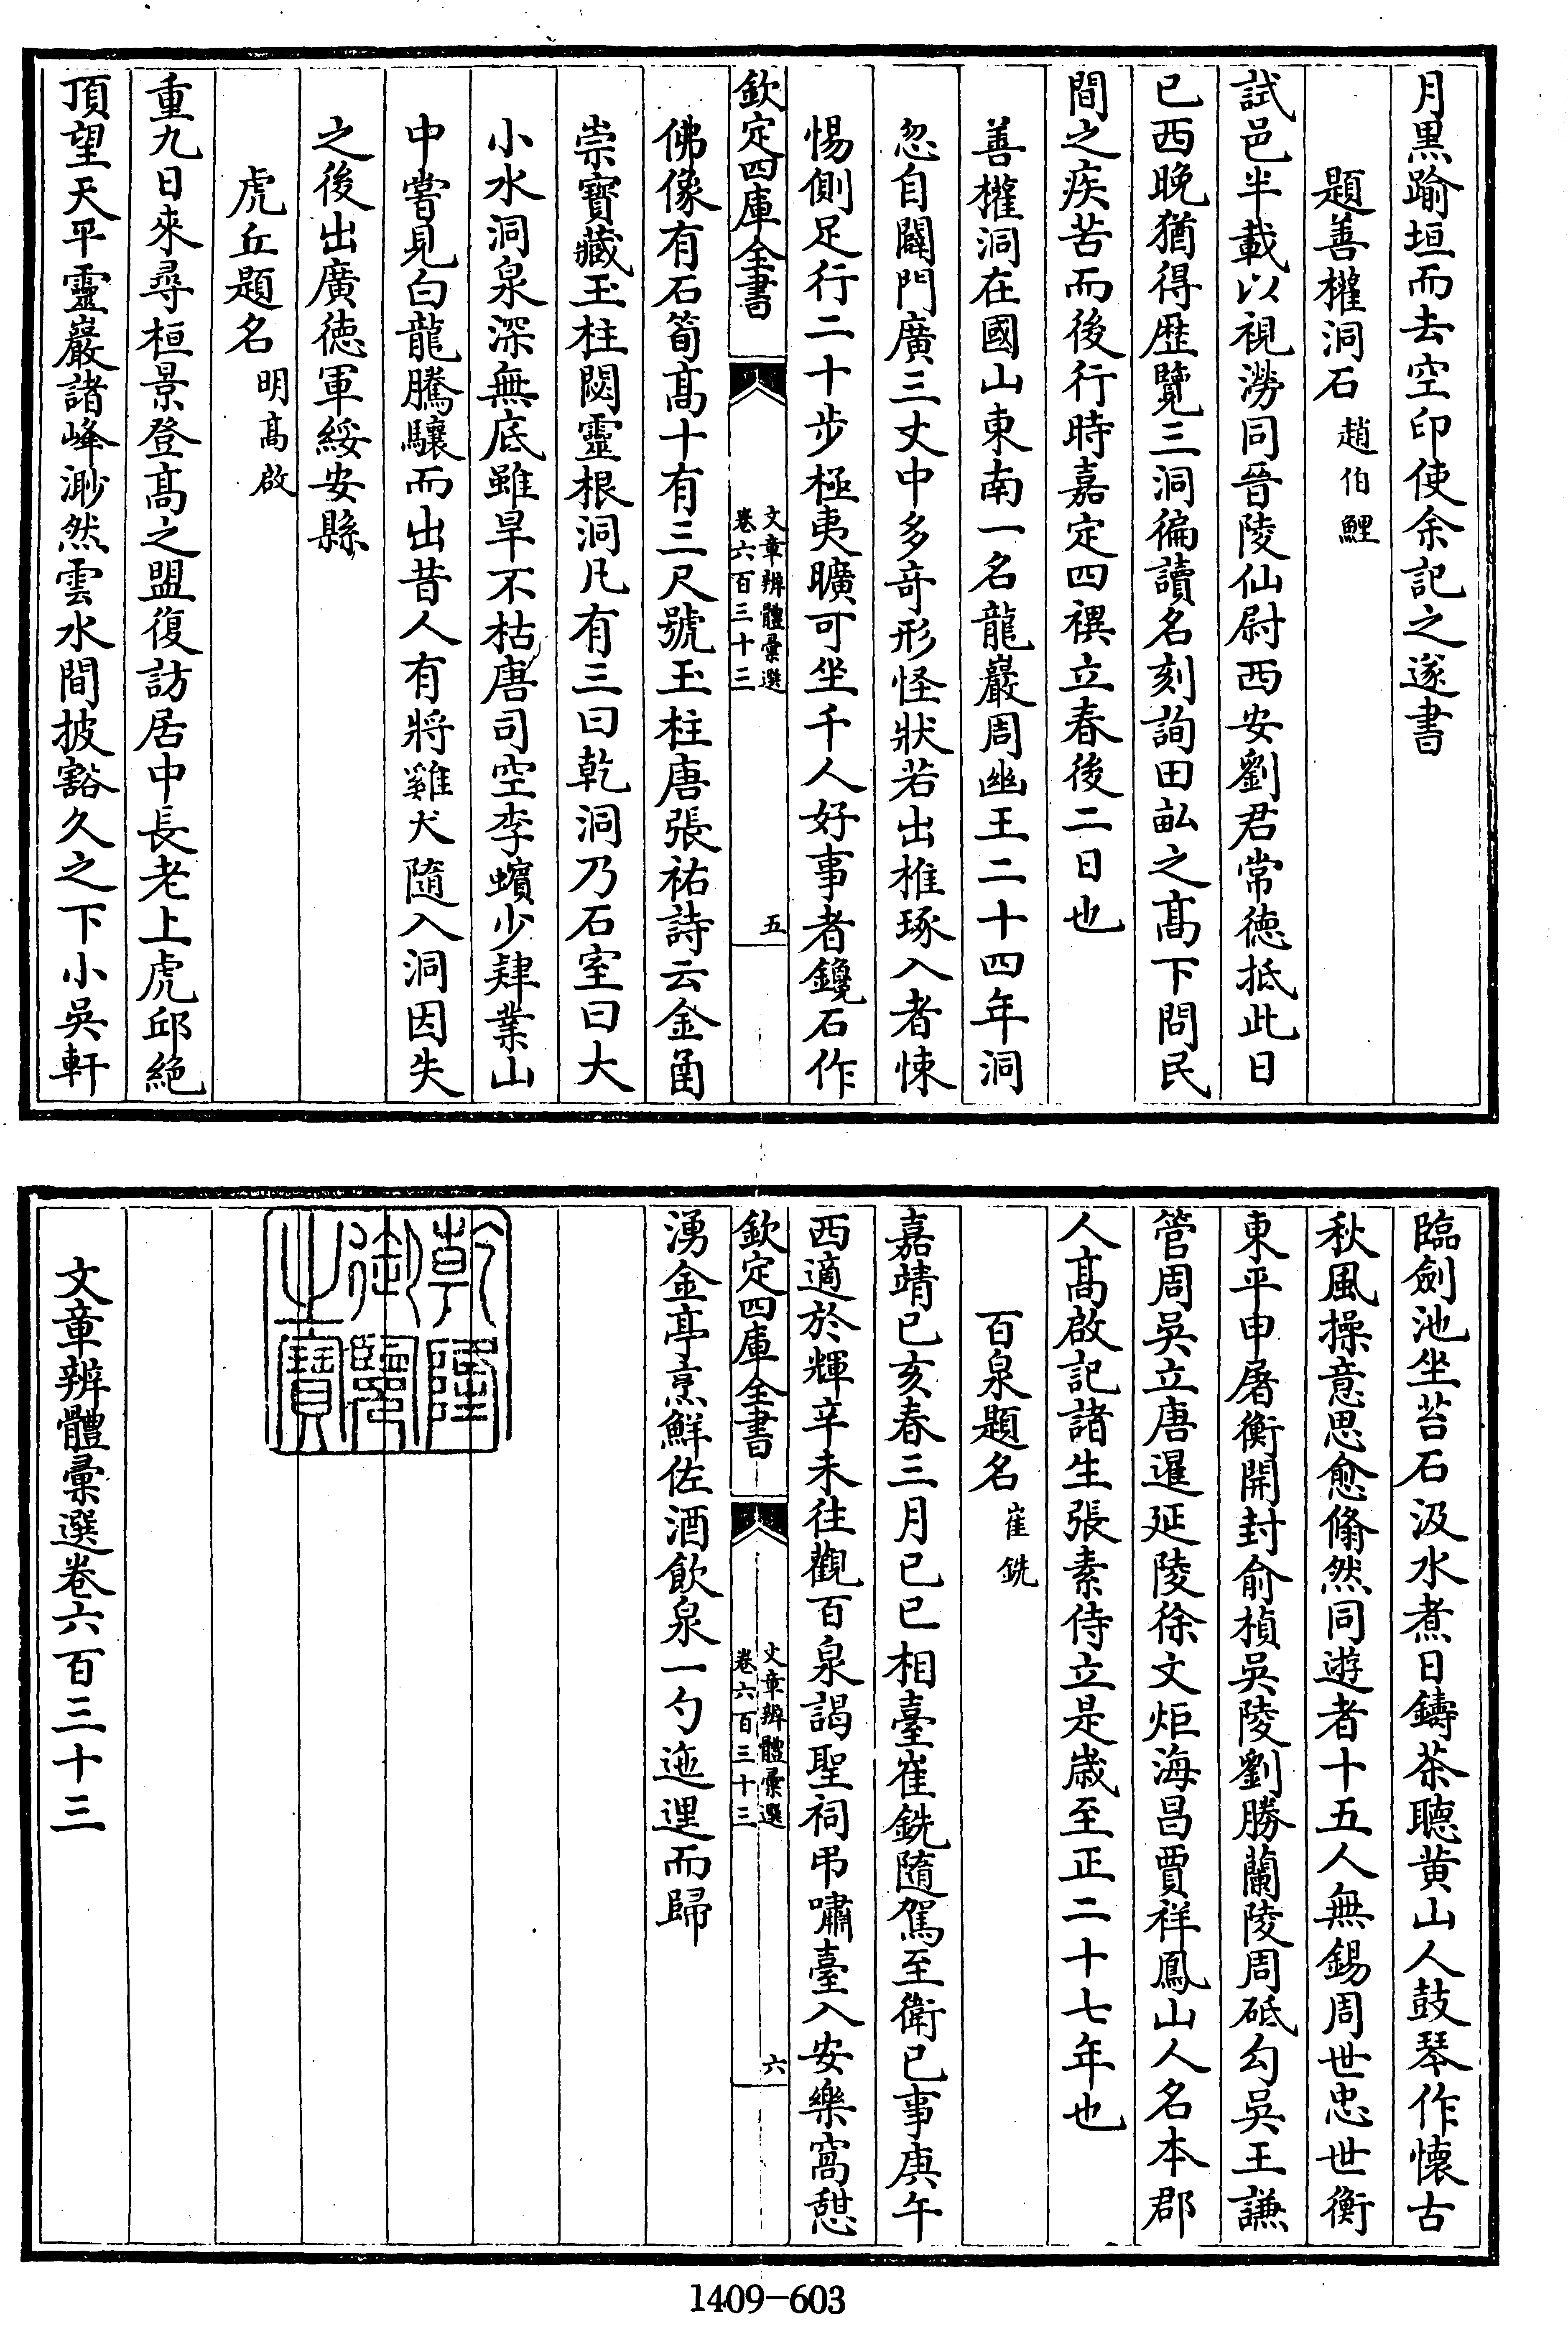 月黒踰垣而去空印使余記之遂書
題善權洞石　趙伯鯉
試邑半載以視澇同晉陵仙尉西安劉君常徳抵此日
已西晩猶得歴覽三洞徧讀名刻詢田畆之髙下問民
間之疾苦而後行時嘉定四禩立春後二日也
善權洞在國山東南一名龍巖周幽王二十四年洞
忽自闢門廣三丈中多竒形怪狀若出椎琢入者悚
惕側足行二十步極夷曠可坐千人好事者鑱石作
欽定四庫全書
文章辨體彙選
卷六百三十三
五
佛像有石筍髙十有三尺號玉柱唐張祐詩云金函
崇寳藏玉柱閟靈根洞凡有三曰乾洞乃石室曰大
小水洞泉深無底雖旱不枯唐司空李蠙少肄業山
中嘗見白龍騰驤而出昔人有將雞犬隨入洞因失
之後出廣徳軍綏安縣
虎丘題名　明髙啟
重九日來尋桓景登髙之盟復訪居中長老上虎邱絶
頂望天平靈巖諸峰渺然雲水間披豁久之下小吳軒
臨劍池坐苔石汲水煮日鑄茶聽黄山人鼓琴作懷古
秋風操意思愈翛然同遊者十五人無錫周世忠世衡
東平申屠衡開封俞楨吳陵劉勝蘭陵周砥勾吳王謙
管周吳立唐暹延陵徐文炬海昌賈祥鳳山人名本郡
人髙啟記諸生張素侍立是歳至正二十七年也
百泉題名　崔銑
嘉靖已亥春三月已已相臺崔銑隨駕至衛已事庚午
西適於輝辛未往觀百泉謁聖祠弔嘯臺入安樂窩憇
欽定四庫全書
文章辨體彙選
卷六百三十三
六
湧金亭烹鮮佐酒飲泉一勺迤逦而歸
乾隆御覽之寶
文章辨體彙選卷六百三十三
1409-603